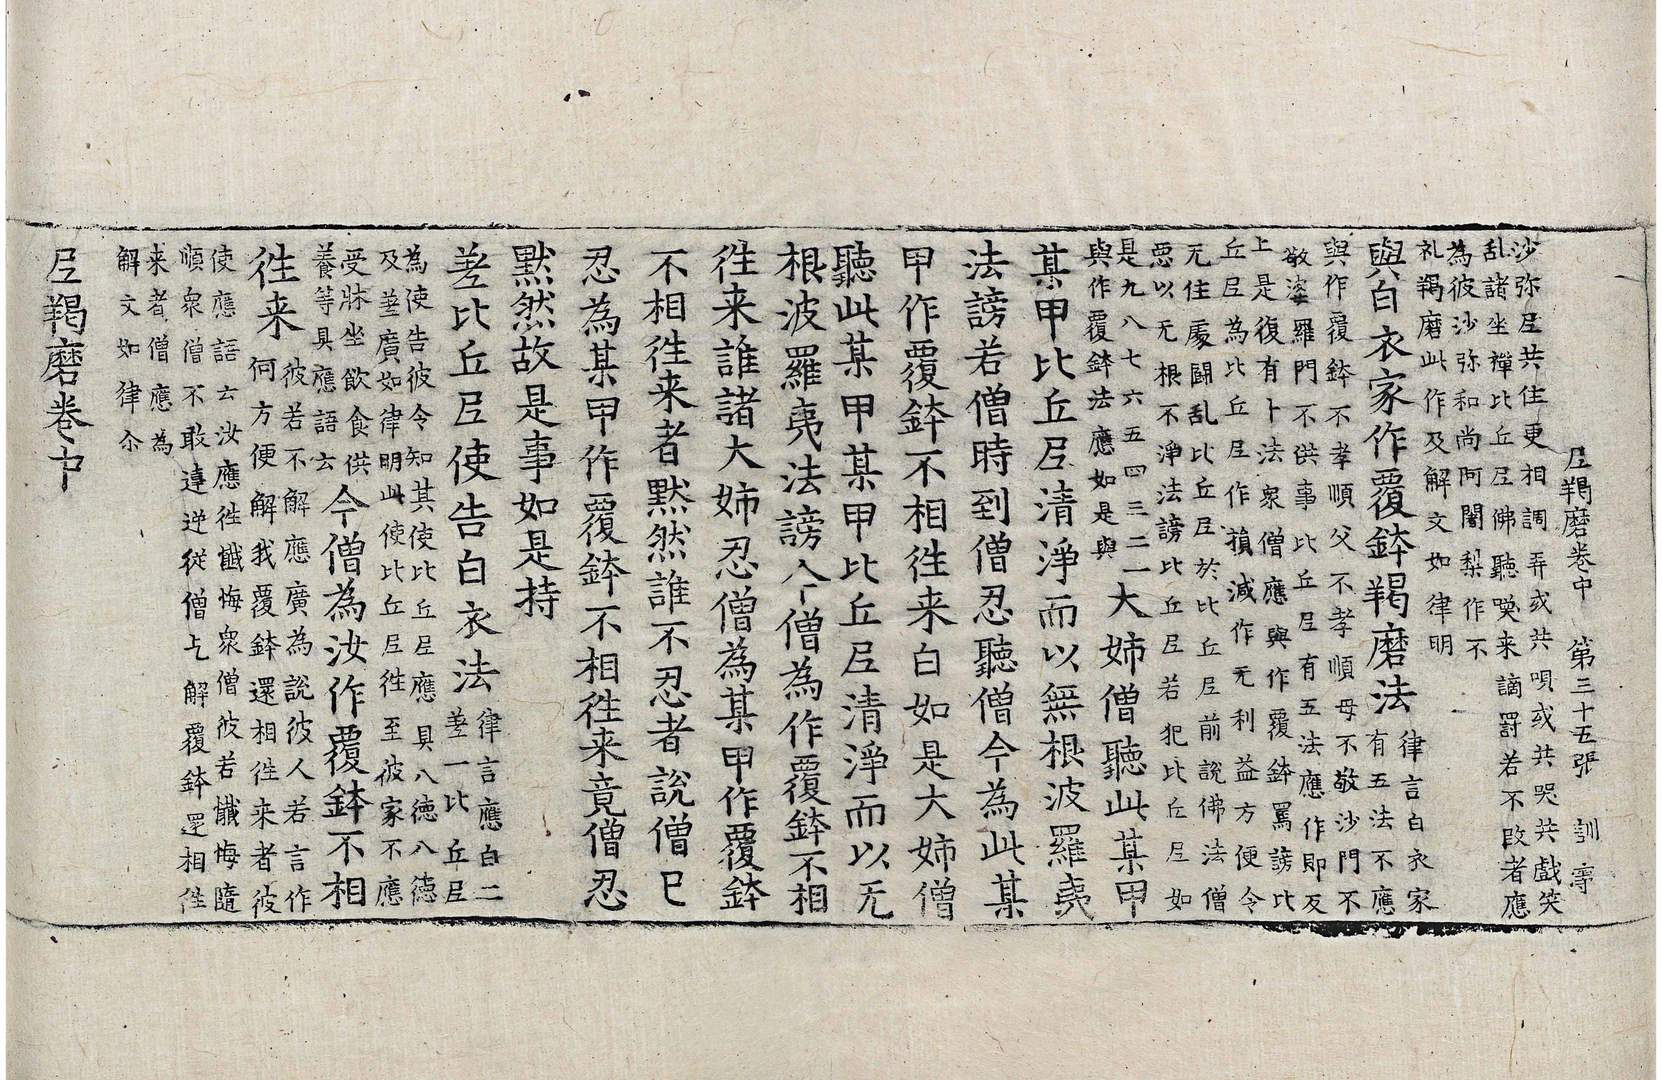 尼羯磨卷中　第三十五張　訓
沙弥尼共住更相調弄或共唄或共哭共戲笑
乱諸坐禪比丘尼佛聽喚来謫罸若不改者應
為彼沙弥和尚阿闍梨作不
礼羯磨此作及解文如律明
與白衣家作覆鉢羯磨法
律言白衣家
有五法不應
與作覆鉢不孝順父不孝順母不敬沙門不
敬婆羅門不供事比丘尼有五法應作即反
上是復有十法衆僧應與作覆鉢罵謗比
丘尼為比丘尼作損減作无利益方便令
无住處鬪乱比丘尼於比丘尼前說佛法僧
惡以无根不淨法謗比丘尼若犯比丘尼如
是九八七六五四三二一
與作覆鉢法應如是與
大姊僧聽此某甲
某甲比丘尼清淨而以無根波羅夷
法謗若僧時到僧忍聽僧今為此某
甲作覆鉢不相徃来白如是大姊僧
聽此某甲某甲比丘尼清淨而以无
根波羅夷法謗今僧為作覆鉢不相
徃来誰諸大姊忍僧為某甲作覆鉢
不相徃来者黙然誰不忍者說僧已
忍為某甲作覆鉢不相徃来竟僧忍
黙然故是事如是持
差比丘尼使告白衣法
律言應白二
差一比丘尼
為使告彼令知其使比丘尼應具八徳八徳
及差廣如律明此使比丘尼徃至彼家不應
受牀坐飲食供
養等具應語云
今僧為汝作覆鉢不相
徃来
彼若不解應廣為說彼人若言作
何方便解我覆鉢還相徃来者彼
使應語云汝應徃懺悔衆僧彼若懺悔隨
順衆僧不敢違逆從僧乞解覆鉢還相徃
来者僧應為
解文如律尒
尼羯磨卷中